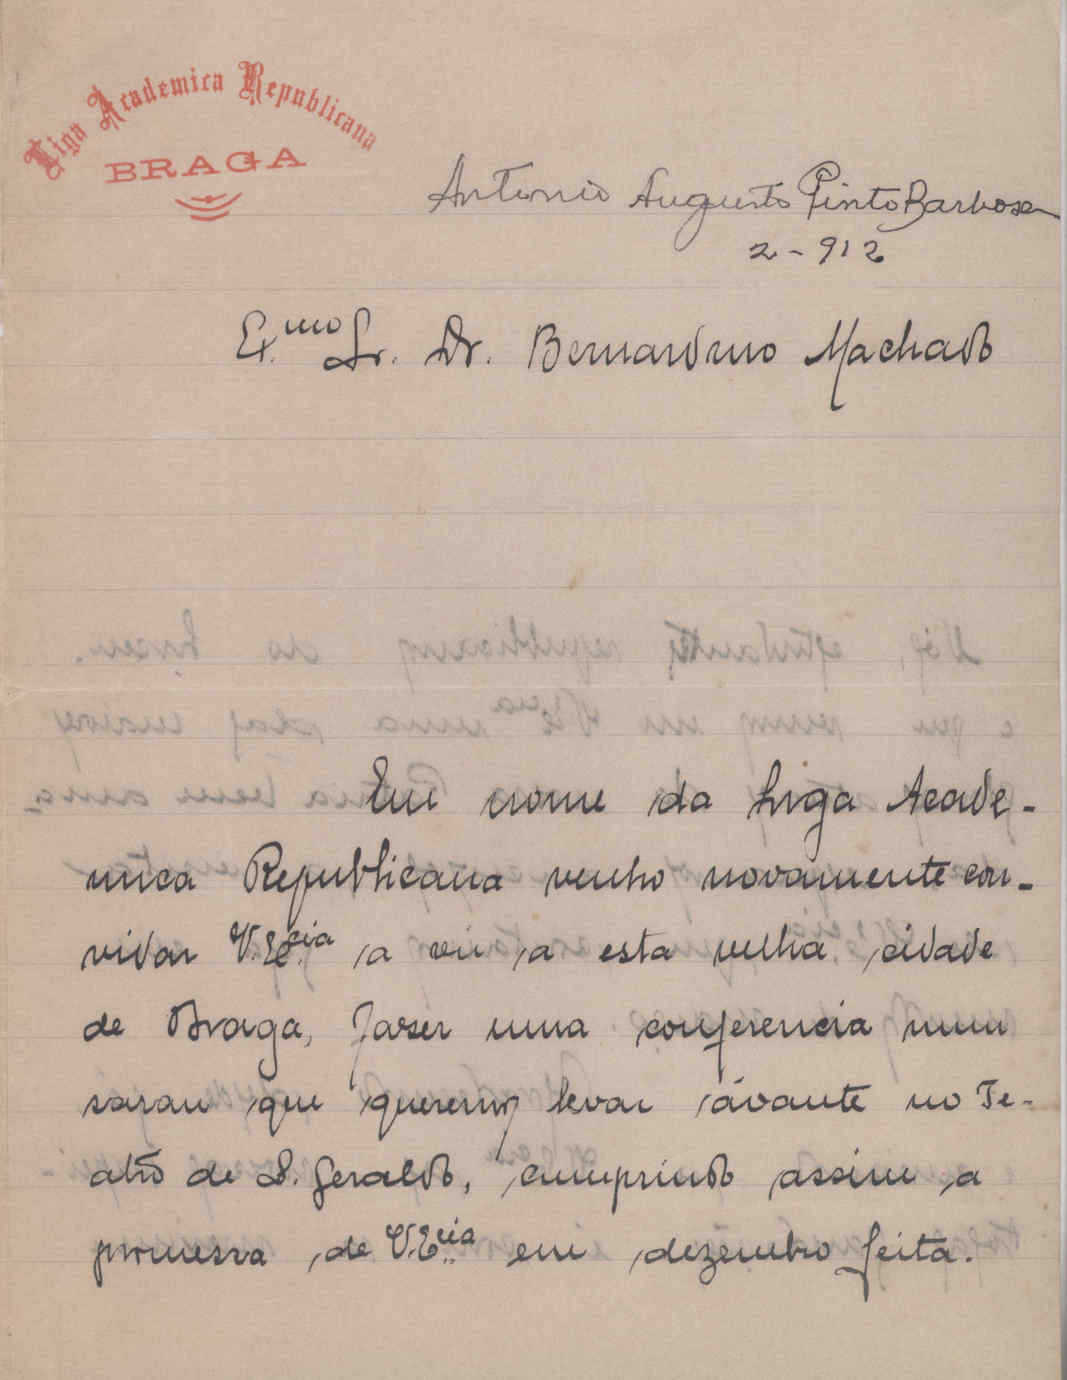 Liga Academica Republicana
BRAGA
Antonio Augusto Pinto Barbosa
2-912
Ex.mo Sr. Dr. Bernardino Machado
Em nome da Liga Acade-
mica Republicana venho novamente con-
vidar V. Ex.cia a vir a esta velha cidade
de Braga, fazer uma conferencia num
sarau que queremos levar ávante no Te-
atro de S. Geraldo, cumprindo assim a
promessa de V. Ex.cia em dezembro feita.